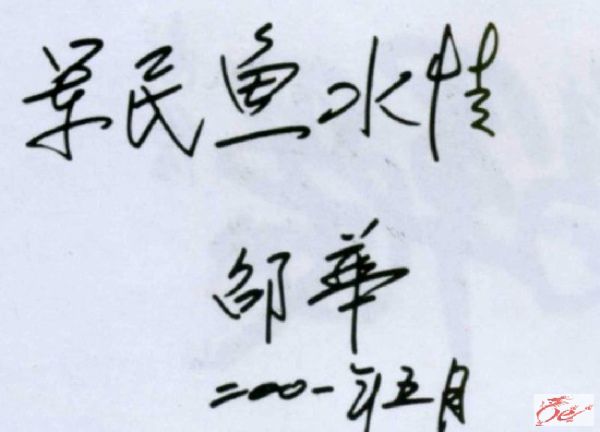 军民鱼水情
邵華
二〇〇一年五月